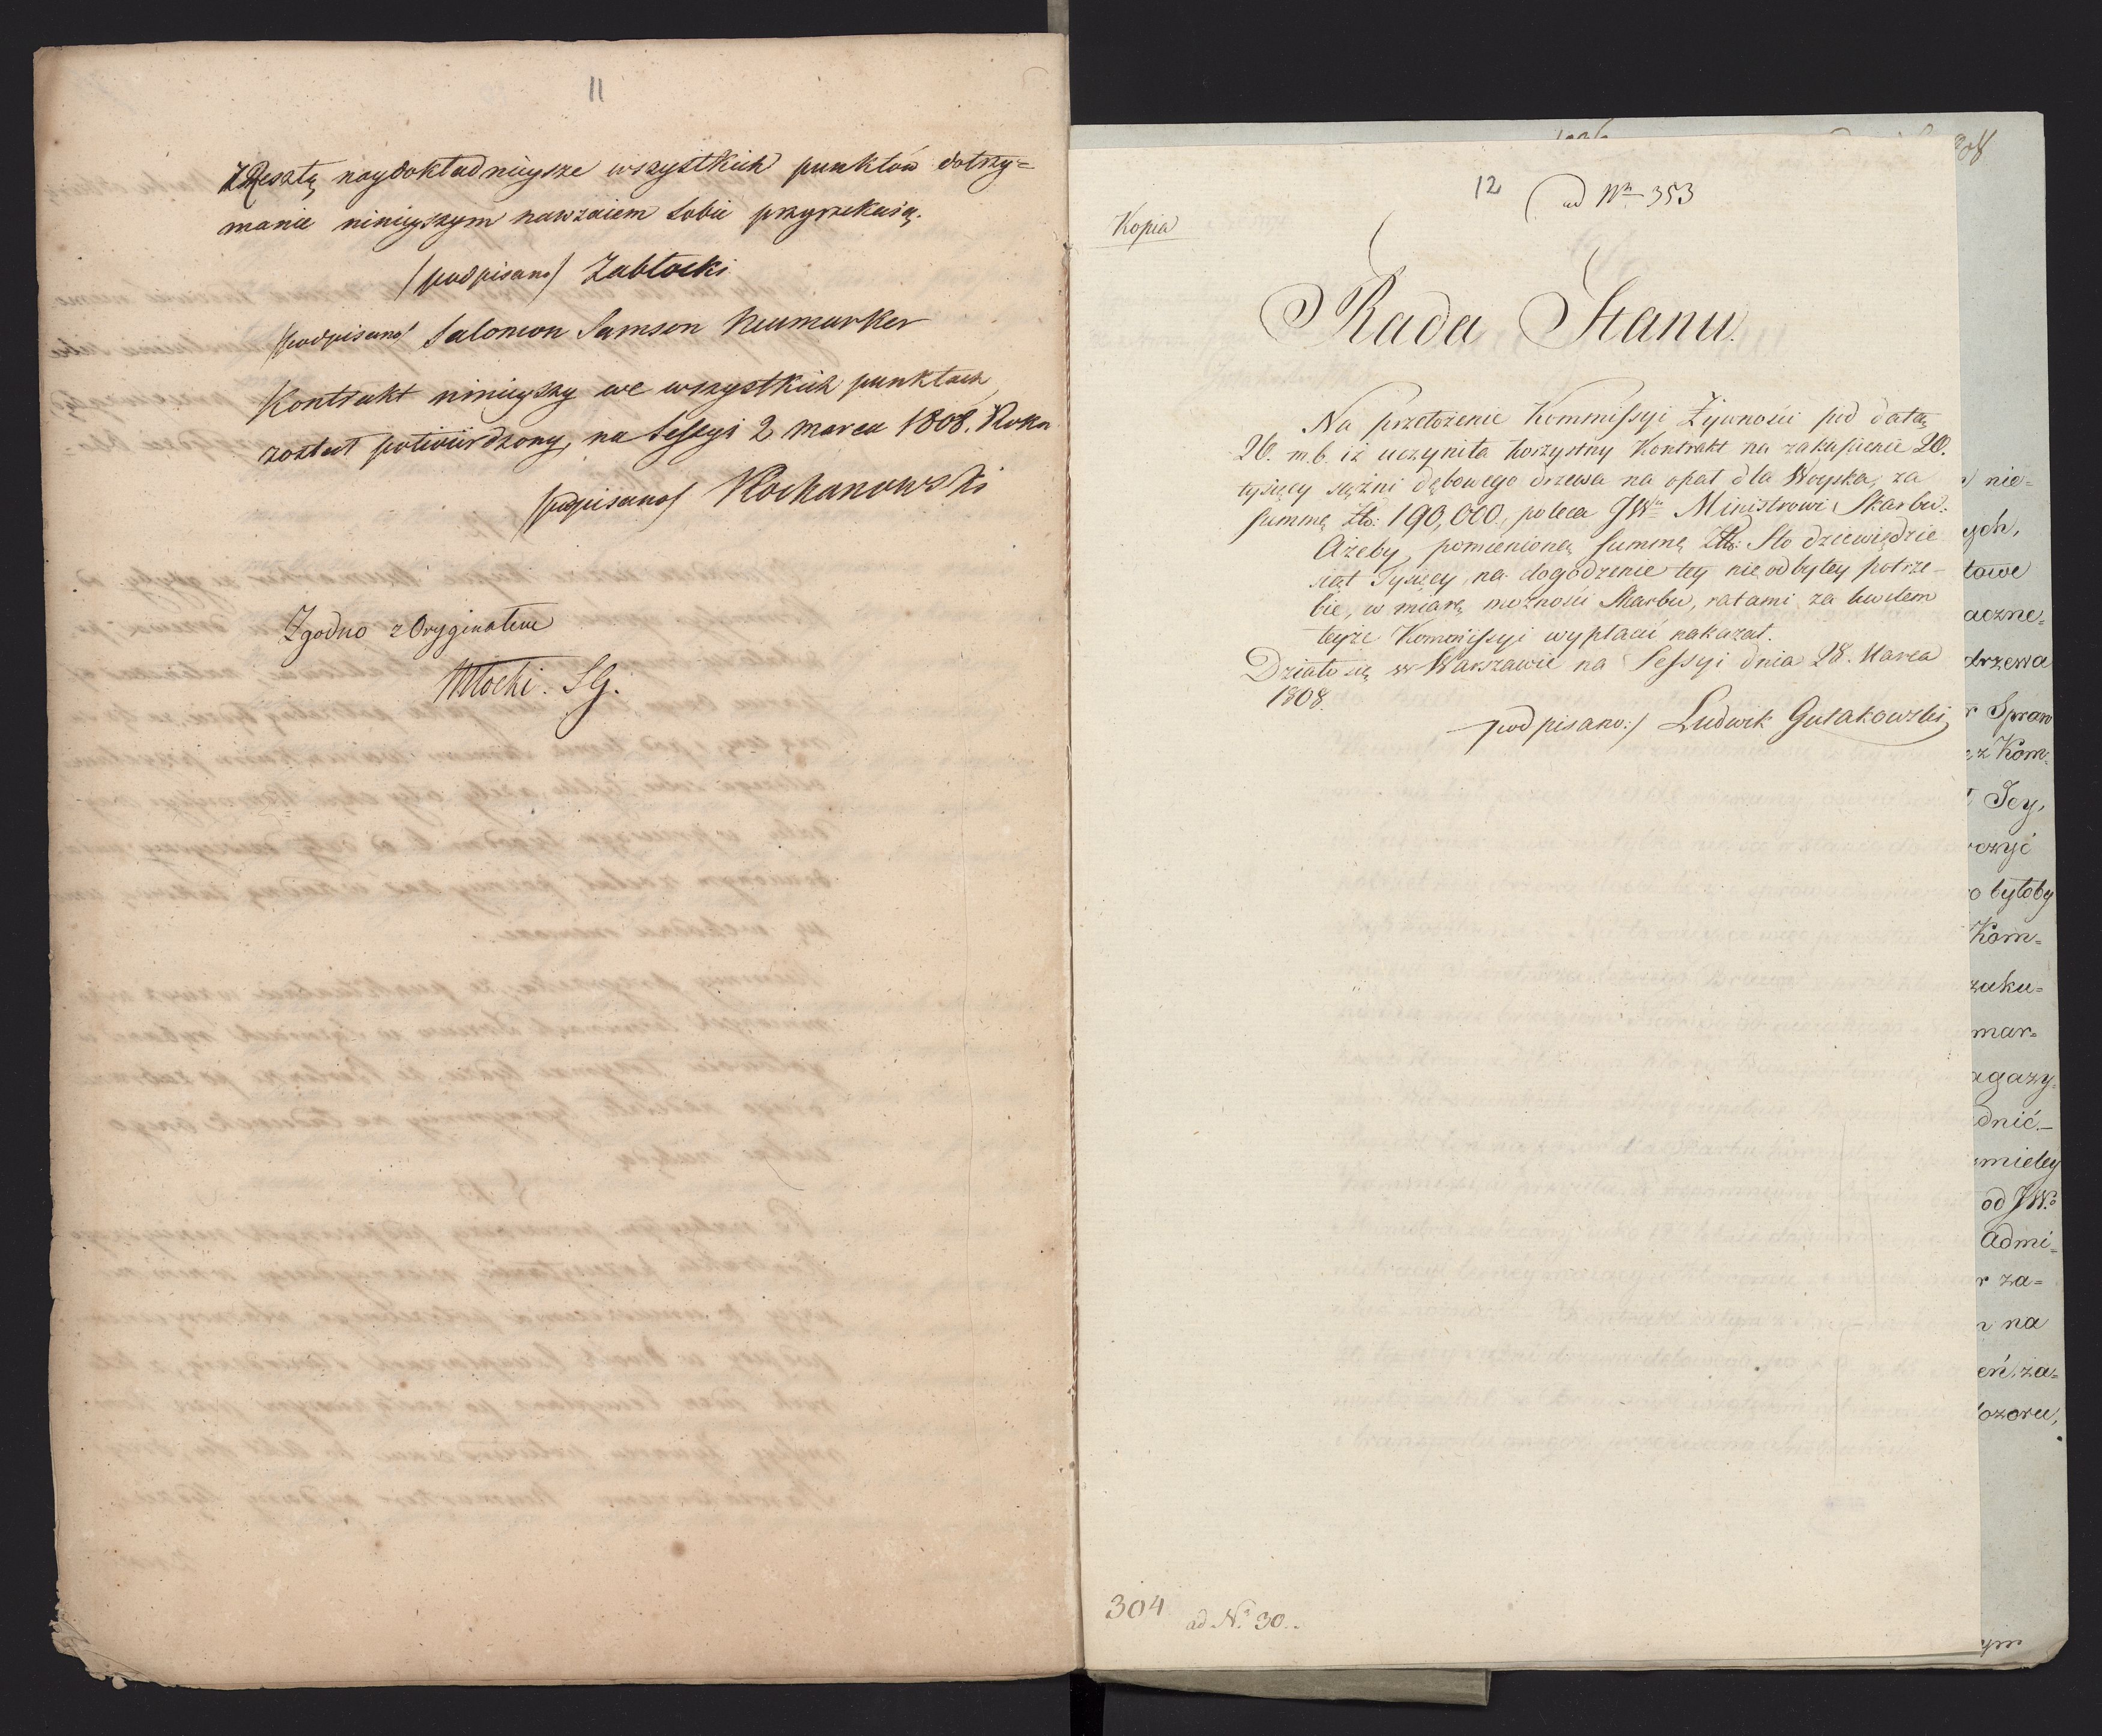 11
zReszta naydokładnieysze wszystkich punktów dotrzy=
manie ninieyszym nawzaiem sobie przyrzekaią.
/podpisano/ Zabłocki
/podpisano/ Salomon Samson Neumarker
Kontrakt ninieyszy we wszystkich punktach
został potwierdzony, na Sessyi 2 marca 1808. Roku
/podpisano/ Kochanowski
Zgodno z Oryginałem
Młocki. SG.
12 ad Nrm 353
Kopia
Rada Stanu.
Na przełożenie Kommissyi Żywności pod datą
26. m. b. iż uczyniła korzystny Kontrakt na zakupienie 20.
tysięcy sążni dębowego drzewa na opał dla Woyska, za
summę Złło: 190,000., poleca JWu Ministrowi Skarbu:
Ażeby, pomienioną summę Złło: Sto dziewięćdzie
siąt Tysięcy, na dogodzenie tey nieodbytey potrze-
bie, w miarę możności Skarbu, ratami za kwitem
teyże Kommissyi wypłacić nakazał.
Działo się w Warszawie na Sessyi dnia 28. Marca
1808.
podpisano:/ Ludwik Gutakowski
304 ad No 30..
nie=
ych,
towe
aczne=
drzewa
r Spraw
ez Kom=
Jey,
czyć
o byłoby
Kom=
zaku=
mar=
agazy=
dnić.-
mieley
od JW.
Admi=
r za=
na
eń, za=
ozoru,
ym